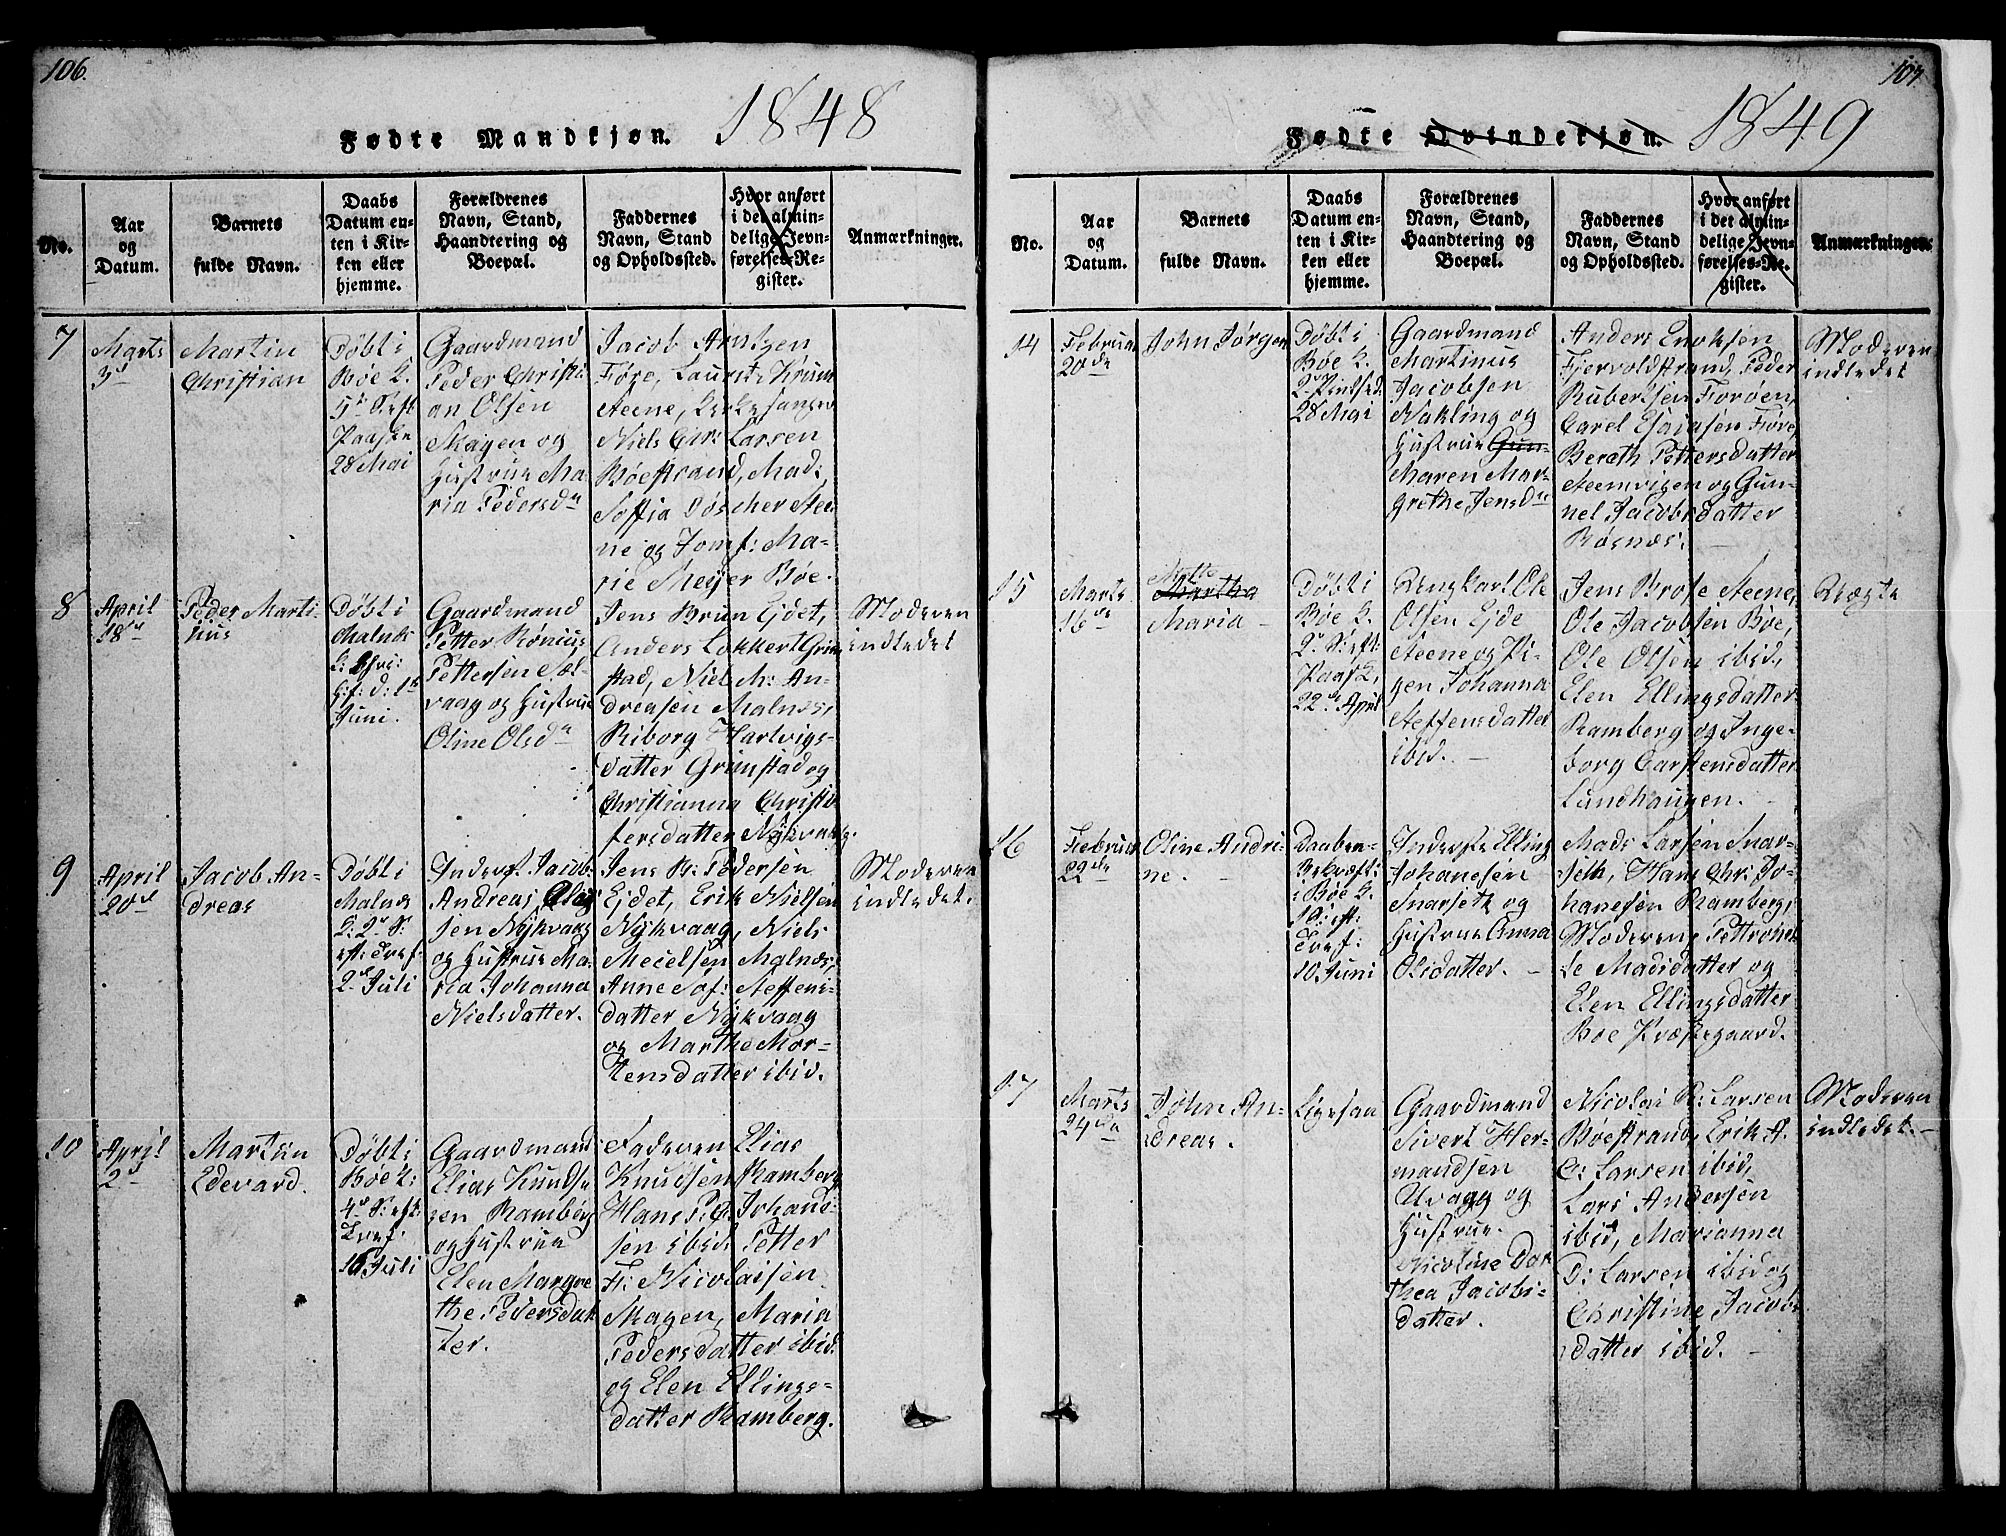 106.
Fødte Mandkjøn. 1848
No.
Aar
og
Datum.
Barnets
fulde Navn.
Daabs
Datum en-
ten i Kir-
ken eller
hjemme.
Forældrenes
Navn, Stand,
Haandtering og
Boepæl.
Faddernes
Navn, Stand
og Opholdssted.
Hvor anført
i det almin-
delige Jevn-
førelses-Re-
gister.
Anmærkninger.
7
Marts
3d
Martin
Christian
Døbt i
Bøe K.
5te S. eft
Paaske
28 Mai
Gaardmand
Peder Christi
an Olsen
Skagen og
Hustrue Ma
ria Pedersdr
Jacob Arntzen
Føre, Laurits Krum
Steene, Kirkesanger
Niels Chr: Larsen
Bøestrand, Mad:
Soffia Døscher Stee
ne og Jomf: Ma-
rie Meyer Bøe.
8
April
18de
Peder Marti
nus
Døbt i
Malnæs
K: Chri:
H:f: d: 1ste
Juni.
Gaardmand
Petter Rønius
Pettersen Søl-
vaag og Hustrue
Oline Olsdr
Jens Brun Ejdet,
Anders Lokkert Grim
stad, Niels M: An-
dreasen Malnæs,
Riborg Hartvigs-
datter Grimstad og
Christianna Christo
fersdatter Nykvaag.
Moderen
indledet
9
April
20de
Jacob An-
dreas
Døbt i
Malnæs
K: 2de S:
eft: Tref.
2de Juli
Inderst Jacob
Andreas Olai
sen Nykvaag
og Hustrue Ma
ria Johanna
Nielsdatter.
Jens B: Pedersen
Ejdet, Erik Nielsen
Nykvaag, Niels
Mecelsen Malnæs,
Anne Sof: Steffens-
datter Nykvaag
og Marthe Mor-
tensdatter ibid.
Moderen
indledet.
10
April
2d
Martin
Edevard.
Døbt i
Bøe K:
4de S: eft:
Tref:
16 Juli
Gaardmand
Elias Knudse
zen Ramberg
og Hustrue
Elen Margre
the Pedersdat
ter.
Faderen Elias
Knudsen Ramberg
Hans P. Johans-
sen ibid. Petter
Fr: Nicolaisen
Skagen, Maria
Pedersdatter ibid.
og Elen Ellings-
datter Ramberg.
107
Fødte Qvindekjøn. 1849
No.
Aar
og
Datum.
Barnets
fulde Navn.
Daabs
Datum en-
ten i Kir-
ken eller
hjemme.
Forældrenes
Navn, Stand,
Haandtering og
Boepæl.
Faddernes
Navn, Stand
og Opholdssted.
Hvor anført
i det almin-
delige Jevn-
førelses-Re-
gister.
Anmærkninger.
14
Februar
20de
John Jørgen
Døbt i
Bøe K.
2d Pindsed.
28 Mai
Gaardmand
Martinus
Jacobsen
Nøkling og
Hustrue Gun-
Maren Mar-
grethe Jensdr
Anders Enoksen
Fjervoldstrand, Peder
Rubertsen Forøen,
Carel Esaiasen Føre,
Berath Pettersdatter
Steenvigen og Gun-
nel Jacobsdatter
Røsnæs.
Moderen
indledet
15
Marts
16de
Mette
Martha
Maria
Døbt i
Bøe K.
2de S: eft:
Paask,
22de April
Ungkarl Ole
Olsen Ejde
Steene og Pi-
gen Johanna
Steffensdatter
ibid.
Jens Brose Steene,
Ole Jacobsen Bøe,
Ole Olsen ibid,
Elen Ellingsdatter
Ramberg og Inge-
borg Carstensdatter
Lundhaugen.
Uægte
16
Februar
22de
Oline Andri-
ne.
Daaben
Bekræft:
i Bøe K.
1 S: eft:
Tref:
10 Juni
Inderste Elling
Johanesen
Snarseth og
Hustrue Anna
Olsdatter.
Mads Larsen Snar-
seth, Hans Chr: Jo-
hanesen Ramberg,
Moderen, Pettronel-
le Madsdatter og
Elen Ellingsdatter
Bøe Præstegaard.
17
Marts
24de
John An-
dreas.
Ligesaa
Gaardmand
Sivert Her-
mandsen
Uvaag og
Hustrue.
Nicoline Dor
thea Jacobs-
datter.
Nicolai R: Larsen
Bøestrand, Erik A.
C: Larsen ibid,
Lars Andersen
ibid, Marianna
D: Larsen ibid og
Christine Jacobs
datter ibid.
Moderen
indledet.